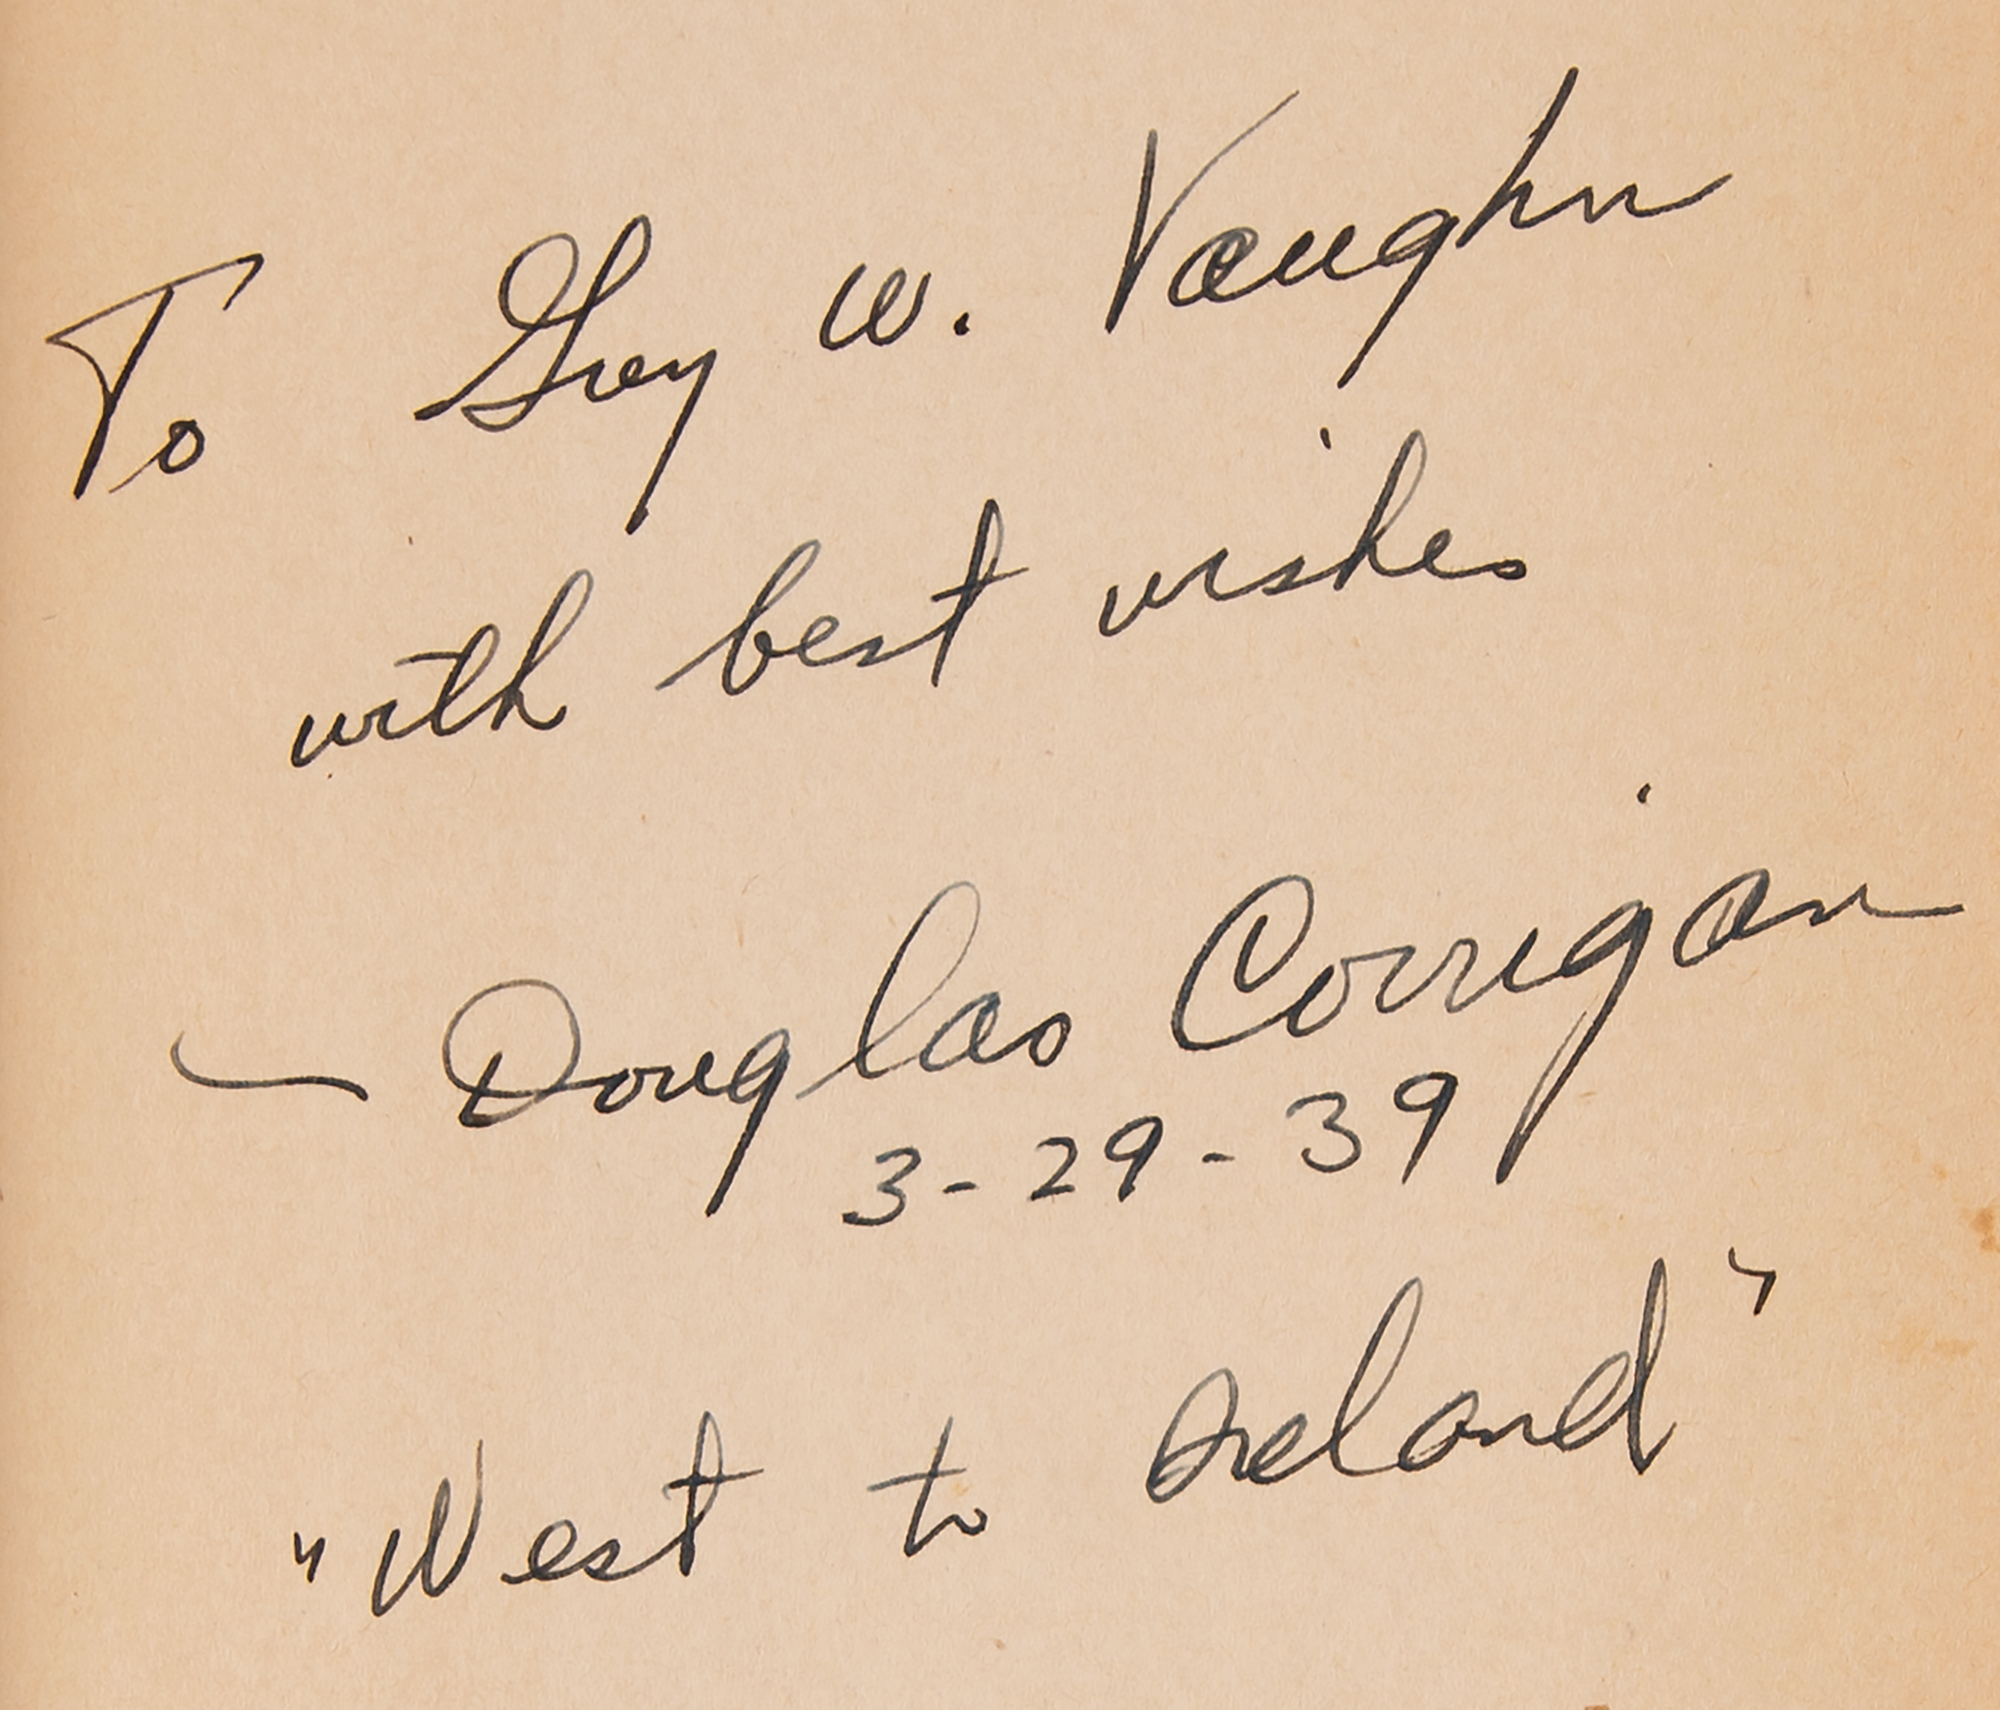 To Grey W. Vaughn
with best wishes
– Douglas Corrigan
3-29-39
"West to Ireland"